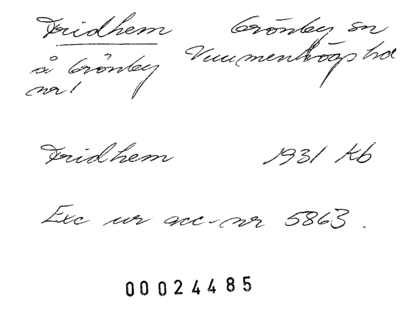 Fridhem Grönby sn
å Grönby Vemmenhögs hd
nr 1
Fridhem 1931 Kb
Exc ur acc-nr 5863.
00024485